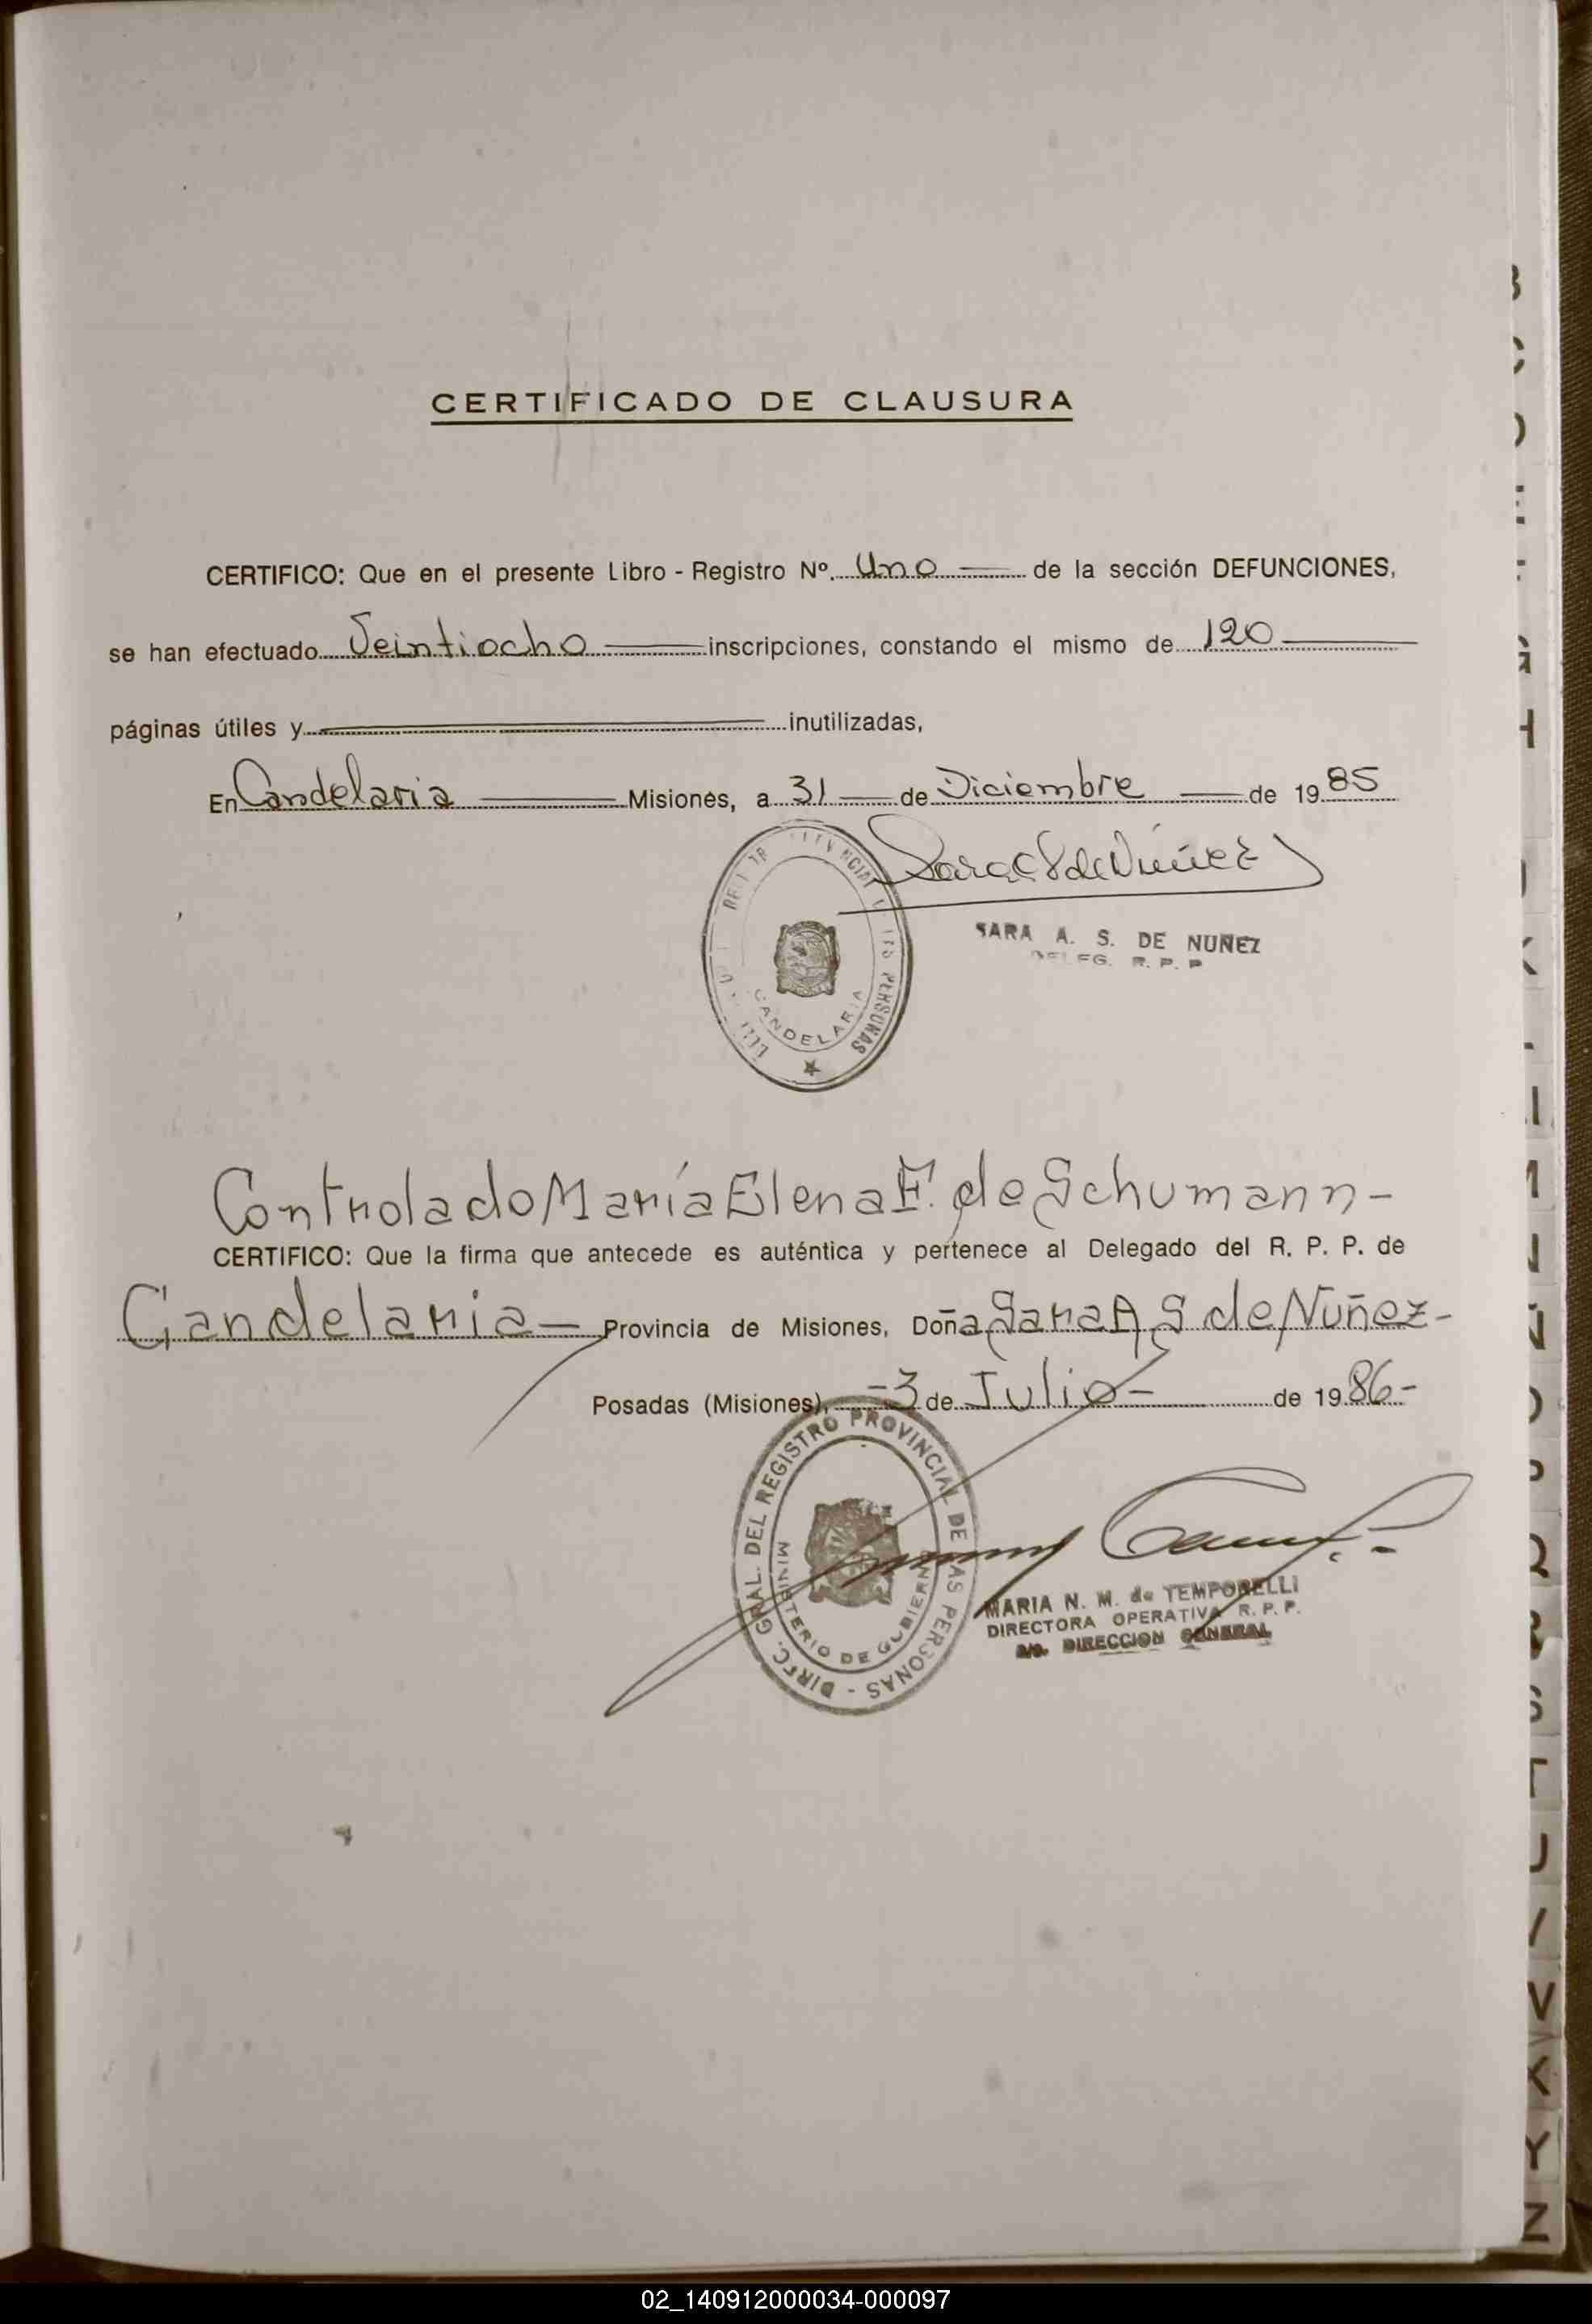 CERTIFICADO DE CLAUSURA
CERTIFICO: Que en el presente Libro - Registro Nº. Uno de la sección DEFUNCIONES,
se han efectuado Veintiocho inscripciones, constando el mismo de 120
páginas útiles y inutilizadas,
En Candelaria Misiones, a 31 de Diciembre de 1985
Sara A S de Núñez
SARA A. S. DE NUÑEZ
DELEG. R. P. P
PERSONAS
CANDELARIA
Controlado María Elena F. de Schumann-
CERTIFICO: Que la firma que antecede es auténtica y pertenece al Delegado del R. P. P. de
Candelaria- Provincia de Misiones, Doña Sara A S de Nuñez-
Posadas (Misiones), -3 de Julio- de 1986-
DIREC. GRAL. DEL REGISTRO PROVINCIAL DE LAS PERSONAS -
MINISTERIO DE GOBIERNO
MARIA N. M. de TEMPORELLI
DIRECTORA OPERATIVA R. P. P.
a/c. DIRECCION GENERAL
B
C
D
E
F
G
H
K
M
N
Ñ
O
P
Q
R
S
T
U
V
X
Y
Z
02_140912000034-000097